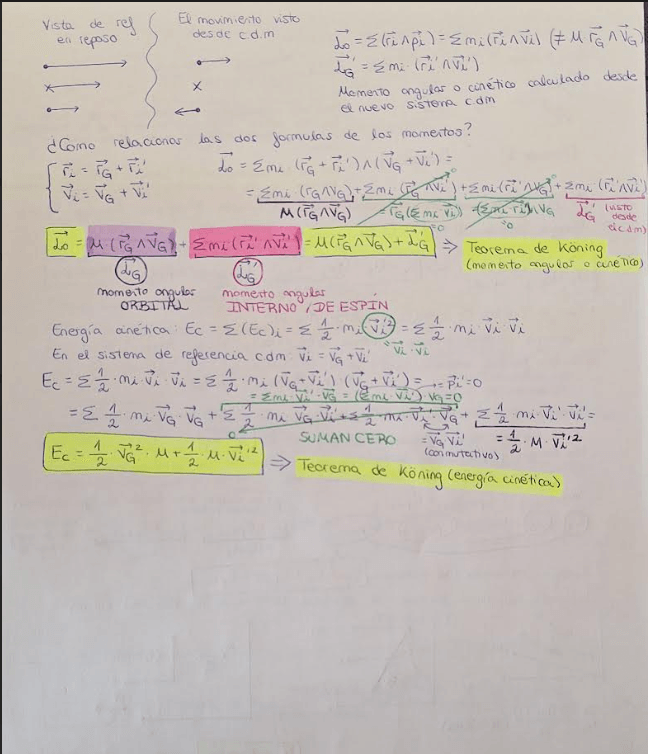 Vista de ref en reposo
El movimiento visto desde c.d.m
x
x
L⃗o = Σ(r⃗i ∧ p⃗i) = Σ mi (r⃗i ∧ v⃗i) (≠ M r⃗G ∧ v⃗G)
L⃗G' = Σ mi · (r⃗i' ∧ v⃗i')
Momento angular o cinético calculado desde
el nuevo sistema c.d.m
¿Cómo relacionar las dos formulas de los momentos?
{ r⃗i = r⃗G + r⃗i'
v⃗i = v⃗G + v⃗i'
L⃗o = Σ mi · (r⃗G + r⃗i') ∧ (v⃗G + v⃗i') =
= Σ mi · (rG ∧ vG) + Σ mi · (r⃗G ∧ v⃗i') + Σ mi · (r⃗i' ∧ v⃗G) + Σ mi · (r⃗i' ∧ v⃗i')
M (r⃗G ∧ v⃗G) = r⃗G (Σ mi v⃗i) = (Σ mi r⃗i) ∧ vG L⃗G' (visto desde el c.d.m)
L⃗o = M · (r⃗G ∧ v⃗G) + Σ mi (r⃗i' ∧ v⃗i') = M (r⃗G ∧ v⃗G) + L⃗G' ⇒ Teorema de Köning
(momento angular o cinético)
L⃗G L⃗G'
momento angular ORBITAL
momento angular INTERNO, DE ESPÍN
Energía cinética: Ec = Σ (Ec)i = Σ 1/2 · mi · v⃗i² = Σ 1/2 · mi · v⃗i · v⃗i
= v⃗i · v⃗i
En el sistema de referencia c.d.m: v⃗i = v⃗G + v⃗i'
Ec = Σ 1/2 · mi · v⃗i · v⃗i = Σ 1/2 · mi (v⃗G + v⃗i') · (v⃗G + v⃗i') = → p⃗i' = 0
= Σ mi · v⃗i' · v⃗G = (Σ mi v⃗i') vG = 0
= Σ 1/2 · mi · v⃗G · v⃗G + Σ 1/2 · mi · v⃗G · v⃗i' + Σ 1/2 · mi · v⃗i' · v⃗G + Σ 1/2 mi · v⃗i' · v⃗i' =
0 SUMAN CERO = v⃗G v⃗i' (conmutativo) = 1/2 · M · v⃗i'²
Ec = 1/2 · v⃗G² · M + 1/2 M · v⃗i'² ⇒ Teorema de Köning (energía cinética)